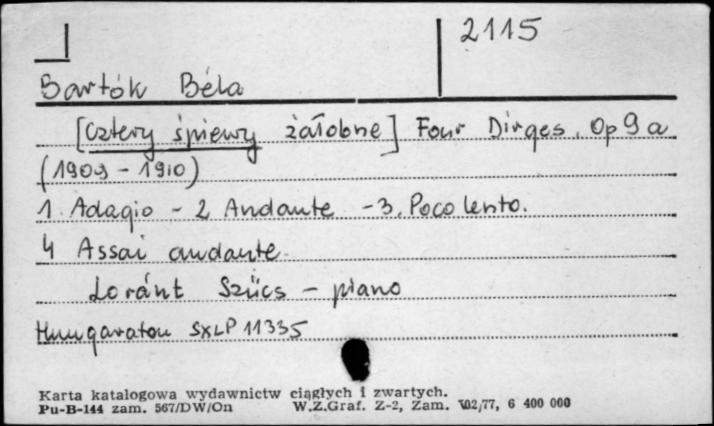 2115
Bartók Béla
[Cztery śpiewy żałobne] Four Dirges. Op 9 a
(1909 - 1910)
1. Adagio - 2 Andante - 3. Poco lento.
4 Assai andante
Loránt Szücs - piano
Hungaraton SXLP 11335
Karta katalogowa wydawnictw ciągłych i zwartych.
Pu-B-144 zam. 567/DW/On W.Z.Graf. Z-2, Zam. 6 400 000